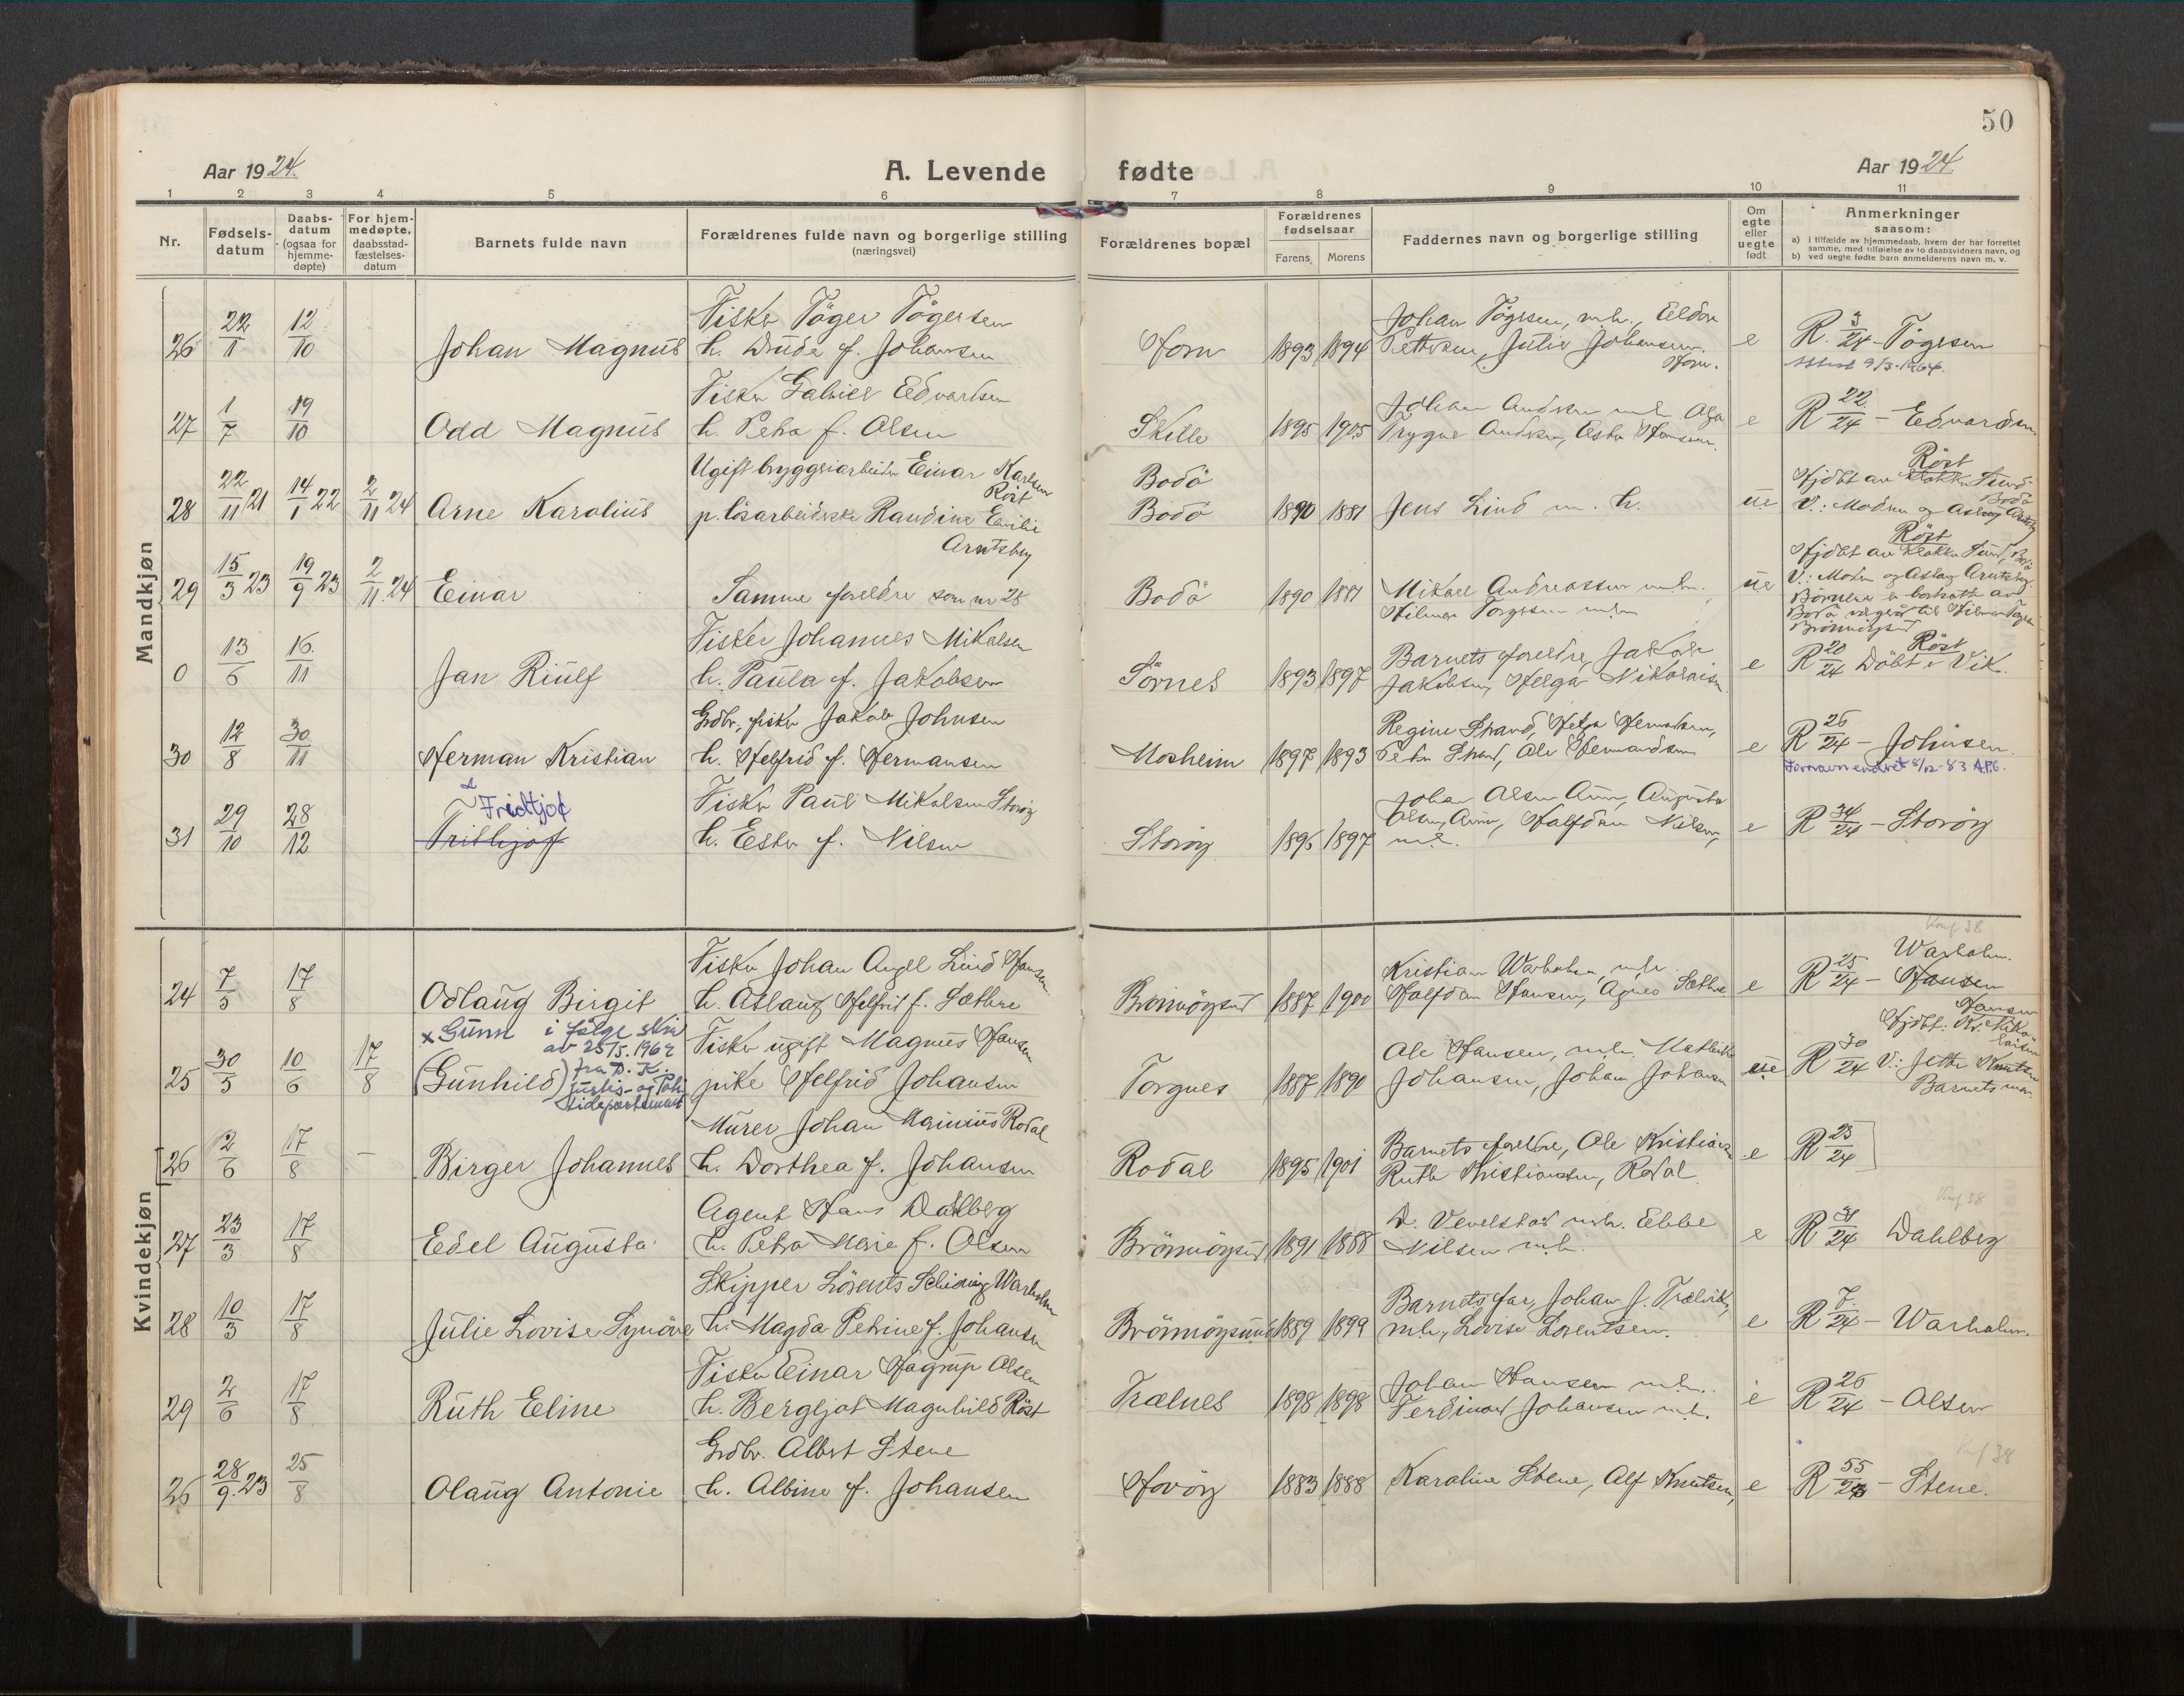 50
Aar 1924.
A. Levende fødte
Aar 1924
1 2 3 4 5 6 7 8 9 10 11
Nr.
Fødsels-
datum
Daabs-
datum
(ogsaa for
hjemme-
døpte)
For hjem-
medøpte,
daabsstad-
fæstelses-
datum
Barnets fulde navn
Forældrenes fulde navn og borgerlige stilling
(næringsvei)
Forældrenes bopæl
Forældrenes
fødselsaar
Farens Morens
Faddernes navn og borgerlige stilling
Om
egte
eller
uegte
født
Anmerkninger
saasom:
a) i tilfælde av hjemmedaab, hvem der har forrettet
samme, med tilføielse av to daabsvidners navn, og
b) ved uegte fødte barn anmelderens navn m. v.
Mandkjøn
26 22/1 12/10 Johan Magnus
Fisker Töger Tögersen
h. Drude f. Johansen
Horn 1893 1894
Johan Tögersen, m.h., Eldor
Pettersen, Julie Johansen.
Horn.
e R. 3/24 - Tögersen
Attest 9/3-1964.
27 1/7 19/10 Odd Magnus
Fisker Gabriel Edvartsen
h. Petra f. Olsen
Skille 1895 1905
Johan Andersen m.h. Olga
Trygve Andersen, Asta Hansen
e R 22/24 - Edvardsen
28 22/11 21 14/1 22 2/11 24 Arne Karolius
Ugift bryggeriarbeider Einar Karlsen
Röst
p. lösarbeiderske Randine Emilie
Arntsberg
Bodö
Bodö 1890 1881
Jens Lind m. h.
ue
Röst
Hjdbt av klokker Sund
Bodö
V.: Modren og Aslaug Arntsberg
29 15/3 23 19/9 23 2/11.24 Einar
Samme foreldre som nr 28
Bodö 1890 1881
Mikael Andreassen m.h.
Hilmar Torgersen m.h.
ue
Röst
Hjdbt av klokker Sund, Bodö
V.: Modren og Aslaug Arntsberg.
Börnene er bortsatte av
Bodö vergeråd til Hilmar Torgersen
Brönnöysund
0 13/6 16/11 Jan Riulf
Fisker Johannes Mikalsen
h. Paula f. Jakobsen
Sörnes 1893 1897
Barnets foreldre, Jakob
Jakobsen, Helga Nikolaisen
e
Röst
R 20/24 Döbt i Vik.
30 12/8 30/11 Herman Kristian
Grdbr., fisker Jakob Johnsen
h. Helfrid f. Hermansen
Mosheim 1897 1893
Regine Strand, Helga Hermansen,
Peder Strand, Ole Hermandsen
e R 26/24 - Johnsen.
Fornavn endret 8/12-83 A.P.G.
31 29/10 28/12
Fridtjof
Frithjof
Fisker Paul Mikalsen Storöy
h. Ester f. Nilsen
Storöy 1895 1897
Johan Olsen Aun, Augusta
Olsen, Aun, Halfdan Nilsen,
m.h.
e R 34/24 - Storöy
Kvindekjøn
24 7/5 17/8 Odlaug Birgit
Fisker Johan Angell Lind Hansen
h. Aslaug Helfrid f. Sæthre
Brönnöysund 1887 1900
Kristian Warholm, m.h.
Halfdan Hansen, Agnes Sæthre
e
Konf 38
Warholm.
R 25/24 - Hansen
25 30/5 10/6 17/8
x Gunn i fölge skriv
av 25/5.1962
(Gunhild) fra D. K.
justis- og Poli-
tidepartement
Fisker ugift Magnus Hansen
pike Helfrid Johansen
Torgnes 1887 1890
Ole Hansen, m.h. Mathilde
Johansen, Johan Johansen
ue
Hansen
Hjdbt: Kr. Nikolaisen
R 30/24 V.: Jette Knutsen
Barnets mor.
26 12/6 17/8 — Birger Johannes
Murer Johan Magnus Rodal
h. Dorthea f. Johansen
Rodal 1895 1901
Barnets foreldre, Ole Kristiansen
Ruth Kristiansen, Rodal
e R 23/24
27 23/3 17/8 Edel Augusta
Agent Hans Dahlberg
h. Petra Marie f. Olsen
Brönnöysund 1891 1888
D. Vevelstad m.h. Ebbe
Nilsen m.h.
e
Konf 38
R 31/24 Dahlberg
28 10/3 17/8 Julie Lovise Synöve
Skipper Lorents Schiering Warholm
h. Magda Petrine f. Johansen
Brönnöysund 1889 1899
Barnets far, Johan J. Trælvik,
m.h., Lovise Lorentsen.
e R 7/24 - Warholm.
29 2/6 17/8 Ruth Eline
Fisker Einar Hagrup Olsen
h. Bergljot Magnhild Röst
Trælnes 1898 1898
Johan Hansen m.h.
Ferdinand Johansen m.h.
e R 26/24 - Olsen
26 28/9.23 25/8 Olaug Antonie
Grdbr. Albert Stene
h. Albine f. Johansen
Havöy 1883 1888
Karoline Stene, Alf Knutsen,
e
Konf 38
R 55/24 - Stene.